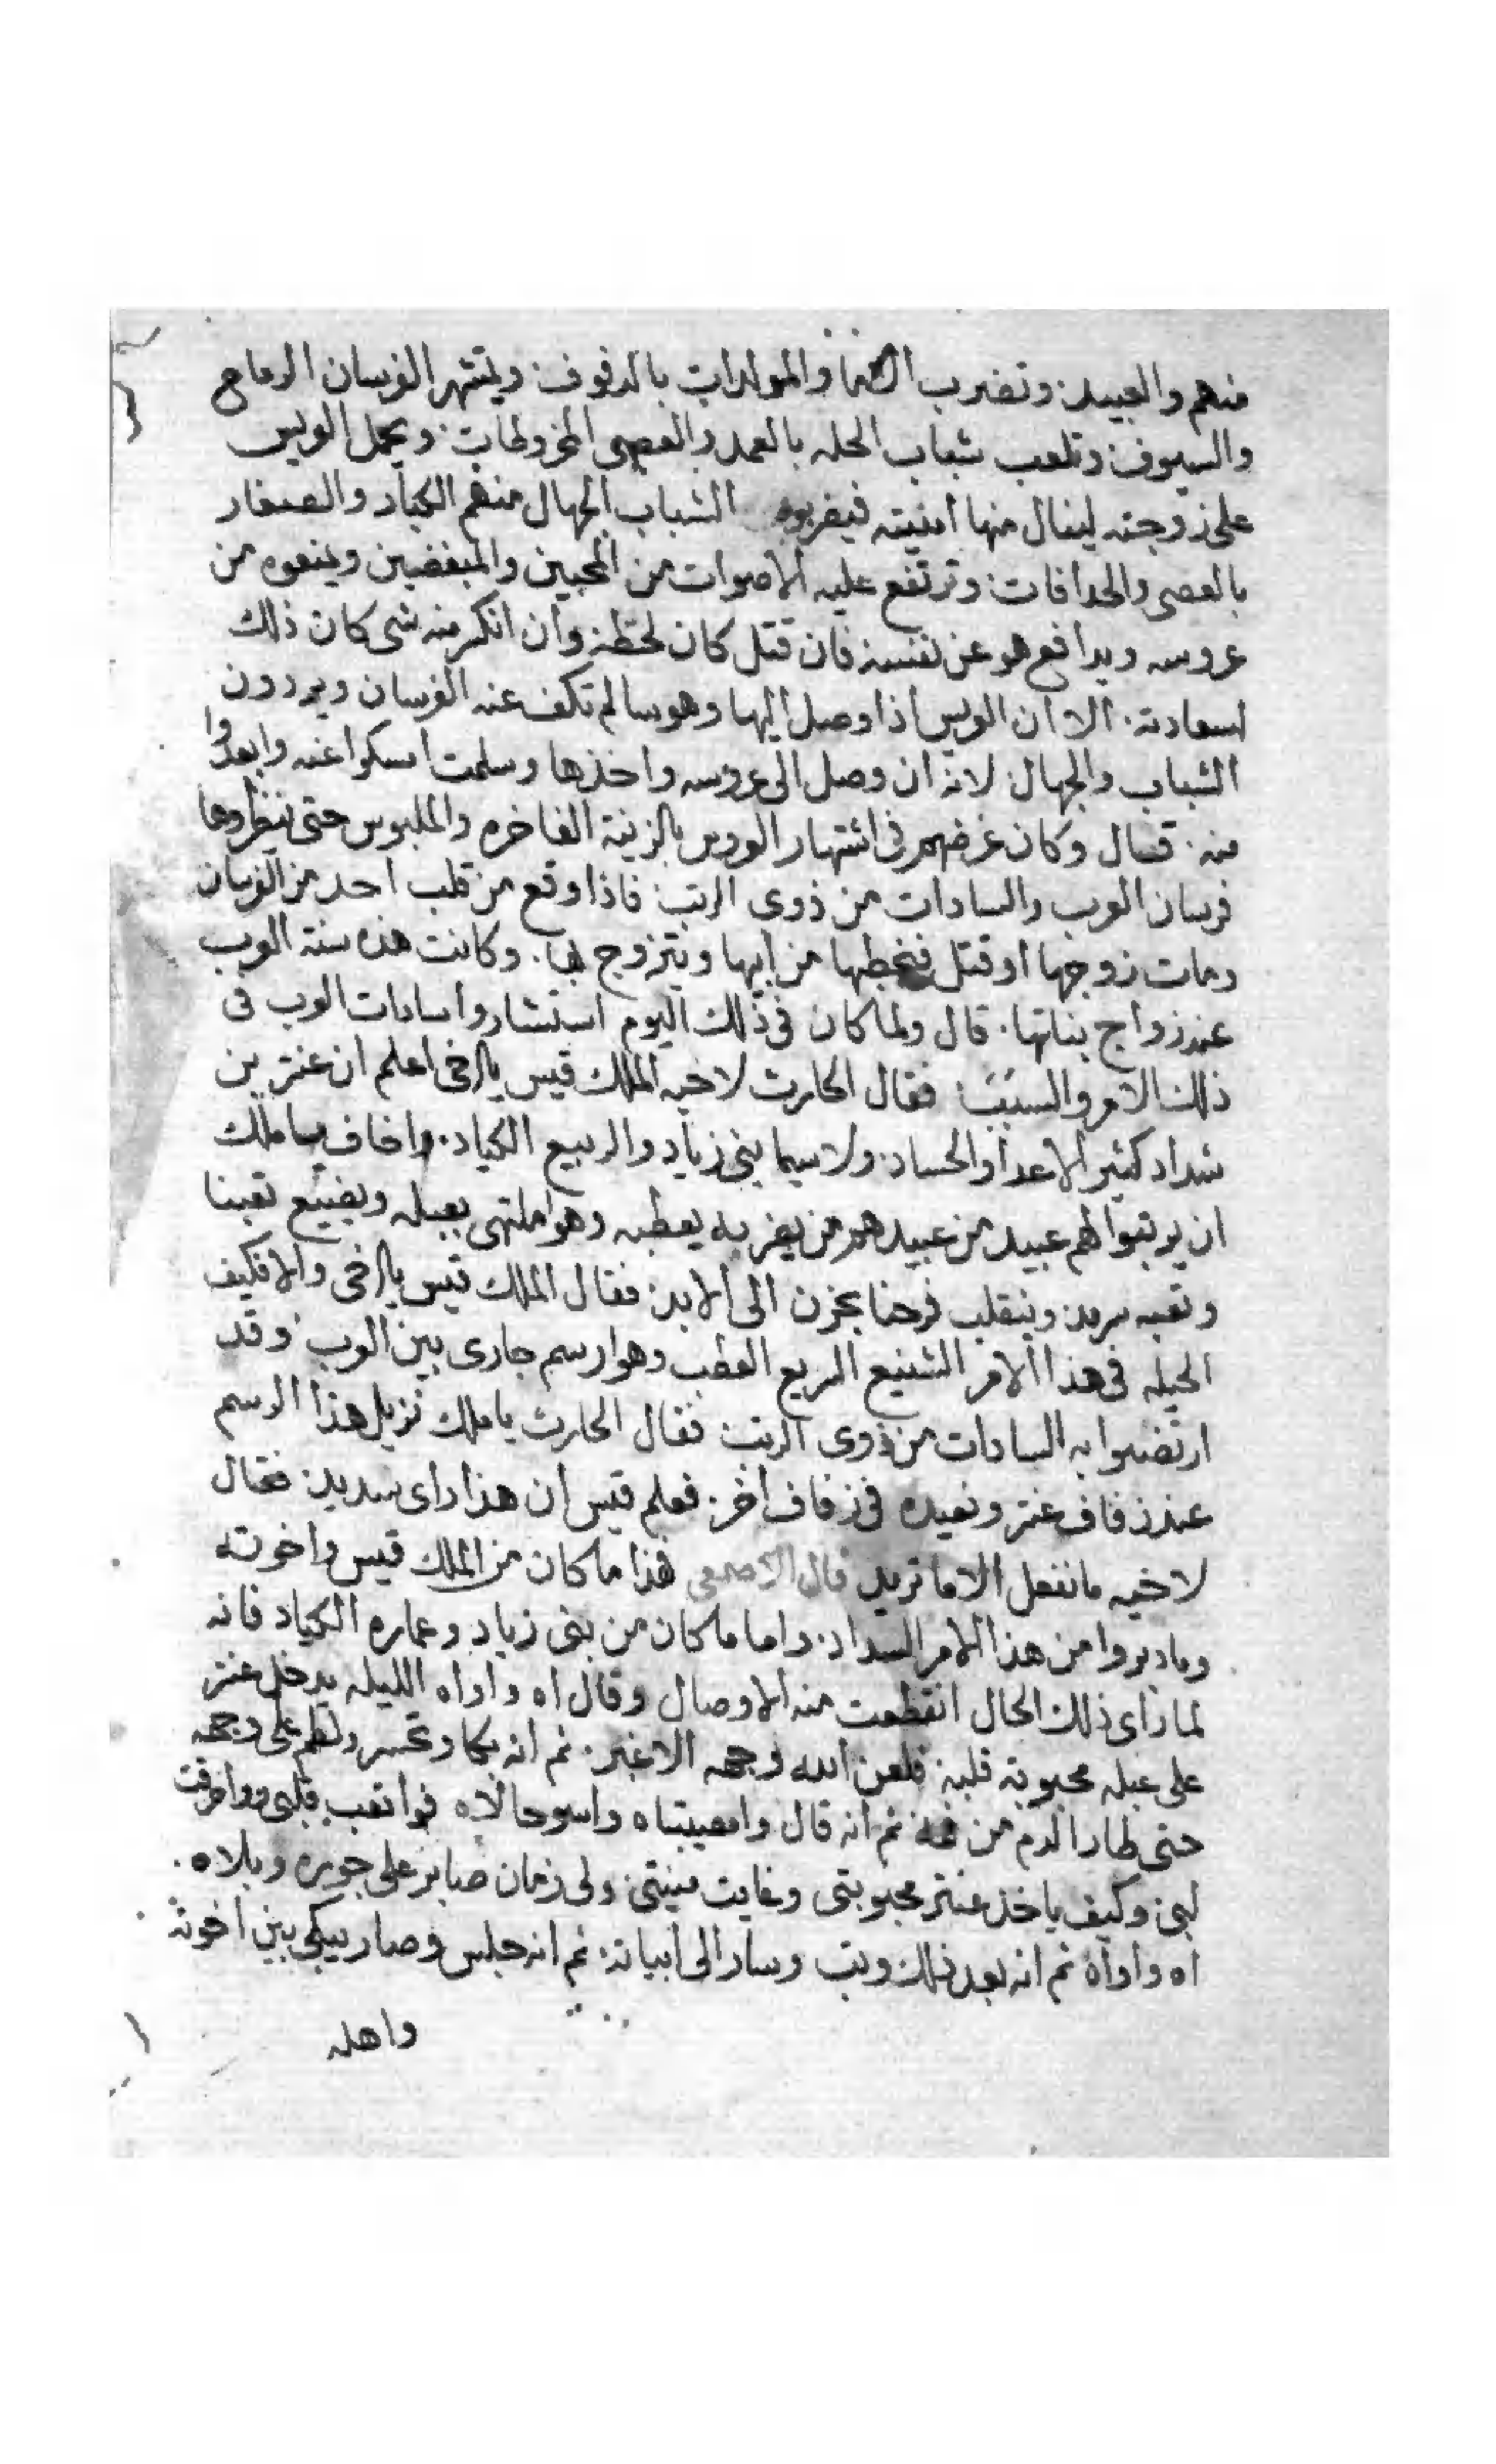 منهم والعبيد. وتضرب الاما والمولدات بالدفوف. ويشتهر الفرسان الرماح
والسيوف. وتلعب شباب الحله بالعمد والعصي المخروطات. ويحمل العريس
على زوجته لينال منها امنيته فيضربوه الشباب الجهال منهم الكبار والصغار
بالعصي والحدافات. وترتفع عليه الاصوات من المحبين والمبغضين ويمنعوه من
عروسه ويدافع هو عن نفسه فان قتل كان لحظه وان انكر منه شي كان ذلك
لسعادته. الا ان العريس اذا وصل اليها وهو سالم تكف عنه الفرسان ويردون
الشباب والجهال لانه ان وصل الى عروسه واخذها وسلمت امسكوا عنه وابعدوا
منه. قال وكان غرضهم في اشتهار العروس بالزينة الفاخره والملبوس حتى تنظروها
فرسان العرب والسادات من ذوى الرتب. فاذا وقع من قلب احد من الفرسان
ومات زوجها او قتل فيخطبها من ابيها ويتزوج بها. وكانت هذه سنة العرب
عند زواج بناتها. قال ولما كان في ذلك اليوم استشاروا سادات العرب في
ذلك الامر والسبب. فقال الحارث لاخيه الملك قيس يا اخي اعلم ان عنتر بن
شداد كثير الاعدا والحساد. ولا سيما بني زياد والربيع الكياد. واخاف يا ملك
ان يرتبوا لهم عبيد من عبيدهم من يضربه يعطبه وهو ملتهي بعبله ويضيع تعبنا
وتعبه سرمد. وينقلب فرحنا بحزن الى الابد. فقال الملك قيس يا اخي والا فكيف
الحيله في هذا الامر الشنيع المريع العطب وهو ارسم جارى بين العرب. وقد
ارتضوا به السادات من ذوى الرتب. فقال الحارث يا ملك نزيل هذا الرسم
عند زفاف عنتر ونعيده في زفاف اخر. فعلم قيس ان هذا راى سديد. فقال
لاخيه ما نفعل الا ما تريد قال الاصمعي هذا ما كان من الملك قيس واخوته
وما دبروا من هذا الامر السداد. واما ما كان من بني زياد وعماره الكياد فانه
لما راى ذلك الحال انقطعت منه الاوصال وقال اه واواه الليله يدخل عنتر
على عبله محبوبة قلبه. فلعن الله وجهه الاغبر. ثم انه بكا وتحسر ولطم على وجهه
حتى طار الدم من فمه ثم انه قال وامصيبتاه واسوحالاه فوا تعب قلبى ووا فرقت
لبى. وكيف ياخذ عنتر محبوبتى وغايت منيتى. ولي زمان صابر على جوره وبلاه.
اه واواه ثم انه بعد ذلك وتب وسار الى ابياته. ثم انه جلس وصار يبكي بين اخوته
واهله